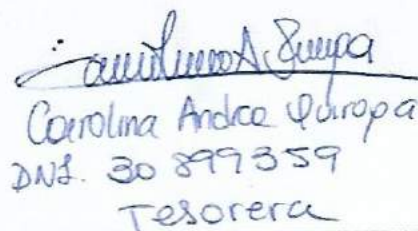 Carolina Andrea Quiroga
DNI. 30 899359
Tesorera